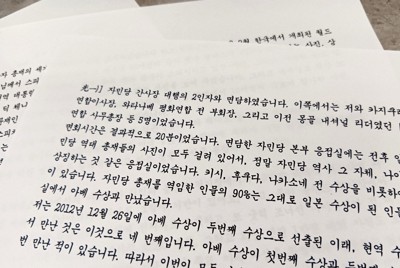 월 한국에서 개최된 월드
는 사진, 상
자 총재의
남에서 스피
대통령
서 스피
光一)] 자민당 간사장 대행의 2인자와 면담하였습니다. 이쪽에서는 저와 카지쿠리
연합이사장, 와타나베 평화연합 전 부회장, 그리고 이전 몽골 내셔널 리더였던 [
연합 사무총장 등 5명이었습니다.
면회시간은 결과적으로 20분이었습니다. 면담한 자민당 본부 응접실에는 전후 일
민당 역대 총재들의 사진이 모두 걸려 있어서, 정말 자민당 역사 그 자체, 나아
상징하는 것 같은 응접실이었습니다. 키시, 후쿠다, 나카소네 전 수상을 비롯하여
이 있습니다. 자민당 총재를 역임한 인물의 90%는 그대로 일본 수상이 된 인물
실에서 아베 수상과 만났습니다.
저는 2012년 12월 26일에 아베 수상이 두번째 수상으로 선출된 이래, 현역 수
서 만난 것은 이것으로 네 번째입니다. 아베 수상이 첫번째 수상과 두번째
번 만난 적이 있습니다. 따라서 이번이 모두